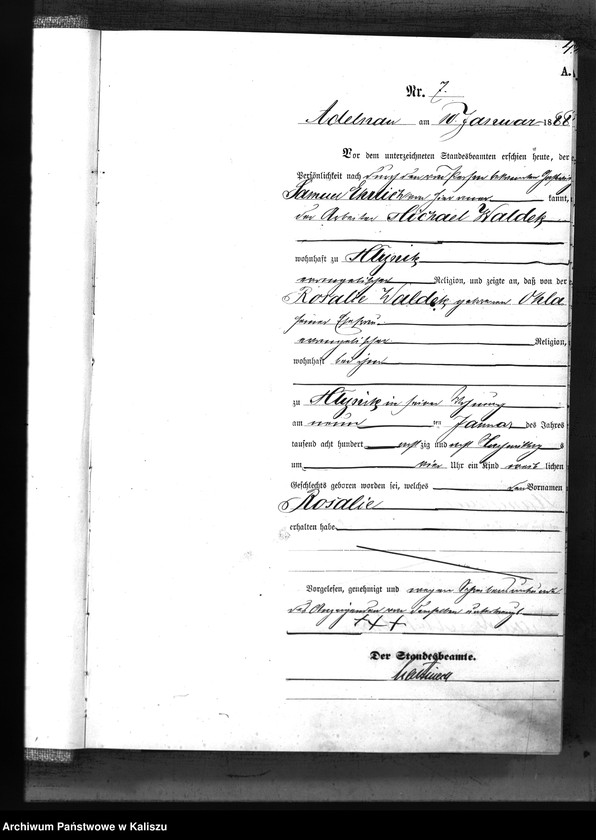 A.
Nr. 7.
Adelnau am 10. Januar 1888
Vor dem unterzeichneten Standesbeamten erschien heute, der
Persönlichkeit nach durch den von Person bekannten
Samuel Ehrlich von hier kannt,
der Arbeiter Michael Waldek
wohnhaft zu
evangelischer Religion, und zeigte an, daß von der
Rosalie Waldek geborenen
seiner Ehefrau
evangelischer Religion,
wohnhaft bei ihm
zu in seiner Wohnung
am neun ten Januar des Jahres
tausend acht hundert acht zig und acht Nachmittag s
um vier Uhr ein Kind weib lichen
Geschlechts geboren worden sei, welches den Vornamen
Rosalie
erhalten habe
Vorgelesen, genehmigt und wegen Schreibensunkunde
des Anzeigenden von demselben unterkreuzt
+++
Der Standesbeamte.
Archiwum Państwowe w Kaliszu